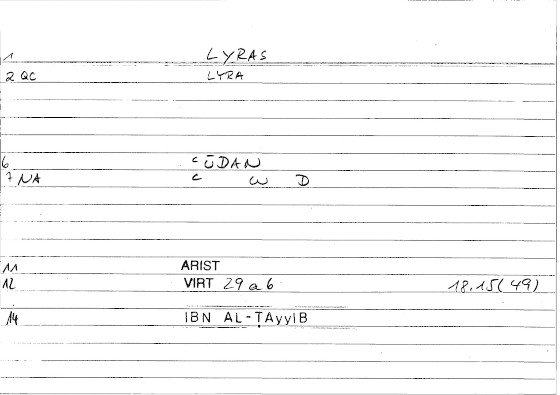 1 LYRAS
2 QC LYRA
6 ʿŪDAN
7 NA ʿ W D
11 ARIST
12 VIRT 29 a 6 18.15(49)
14 IBN AL-ṬAyyIB